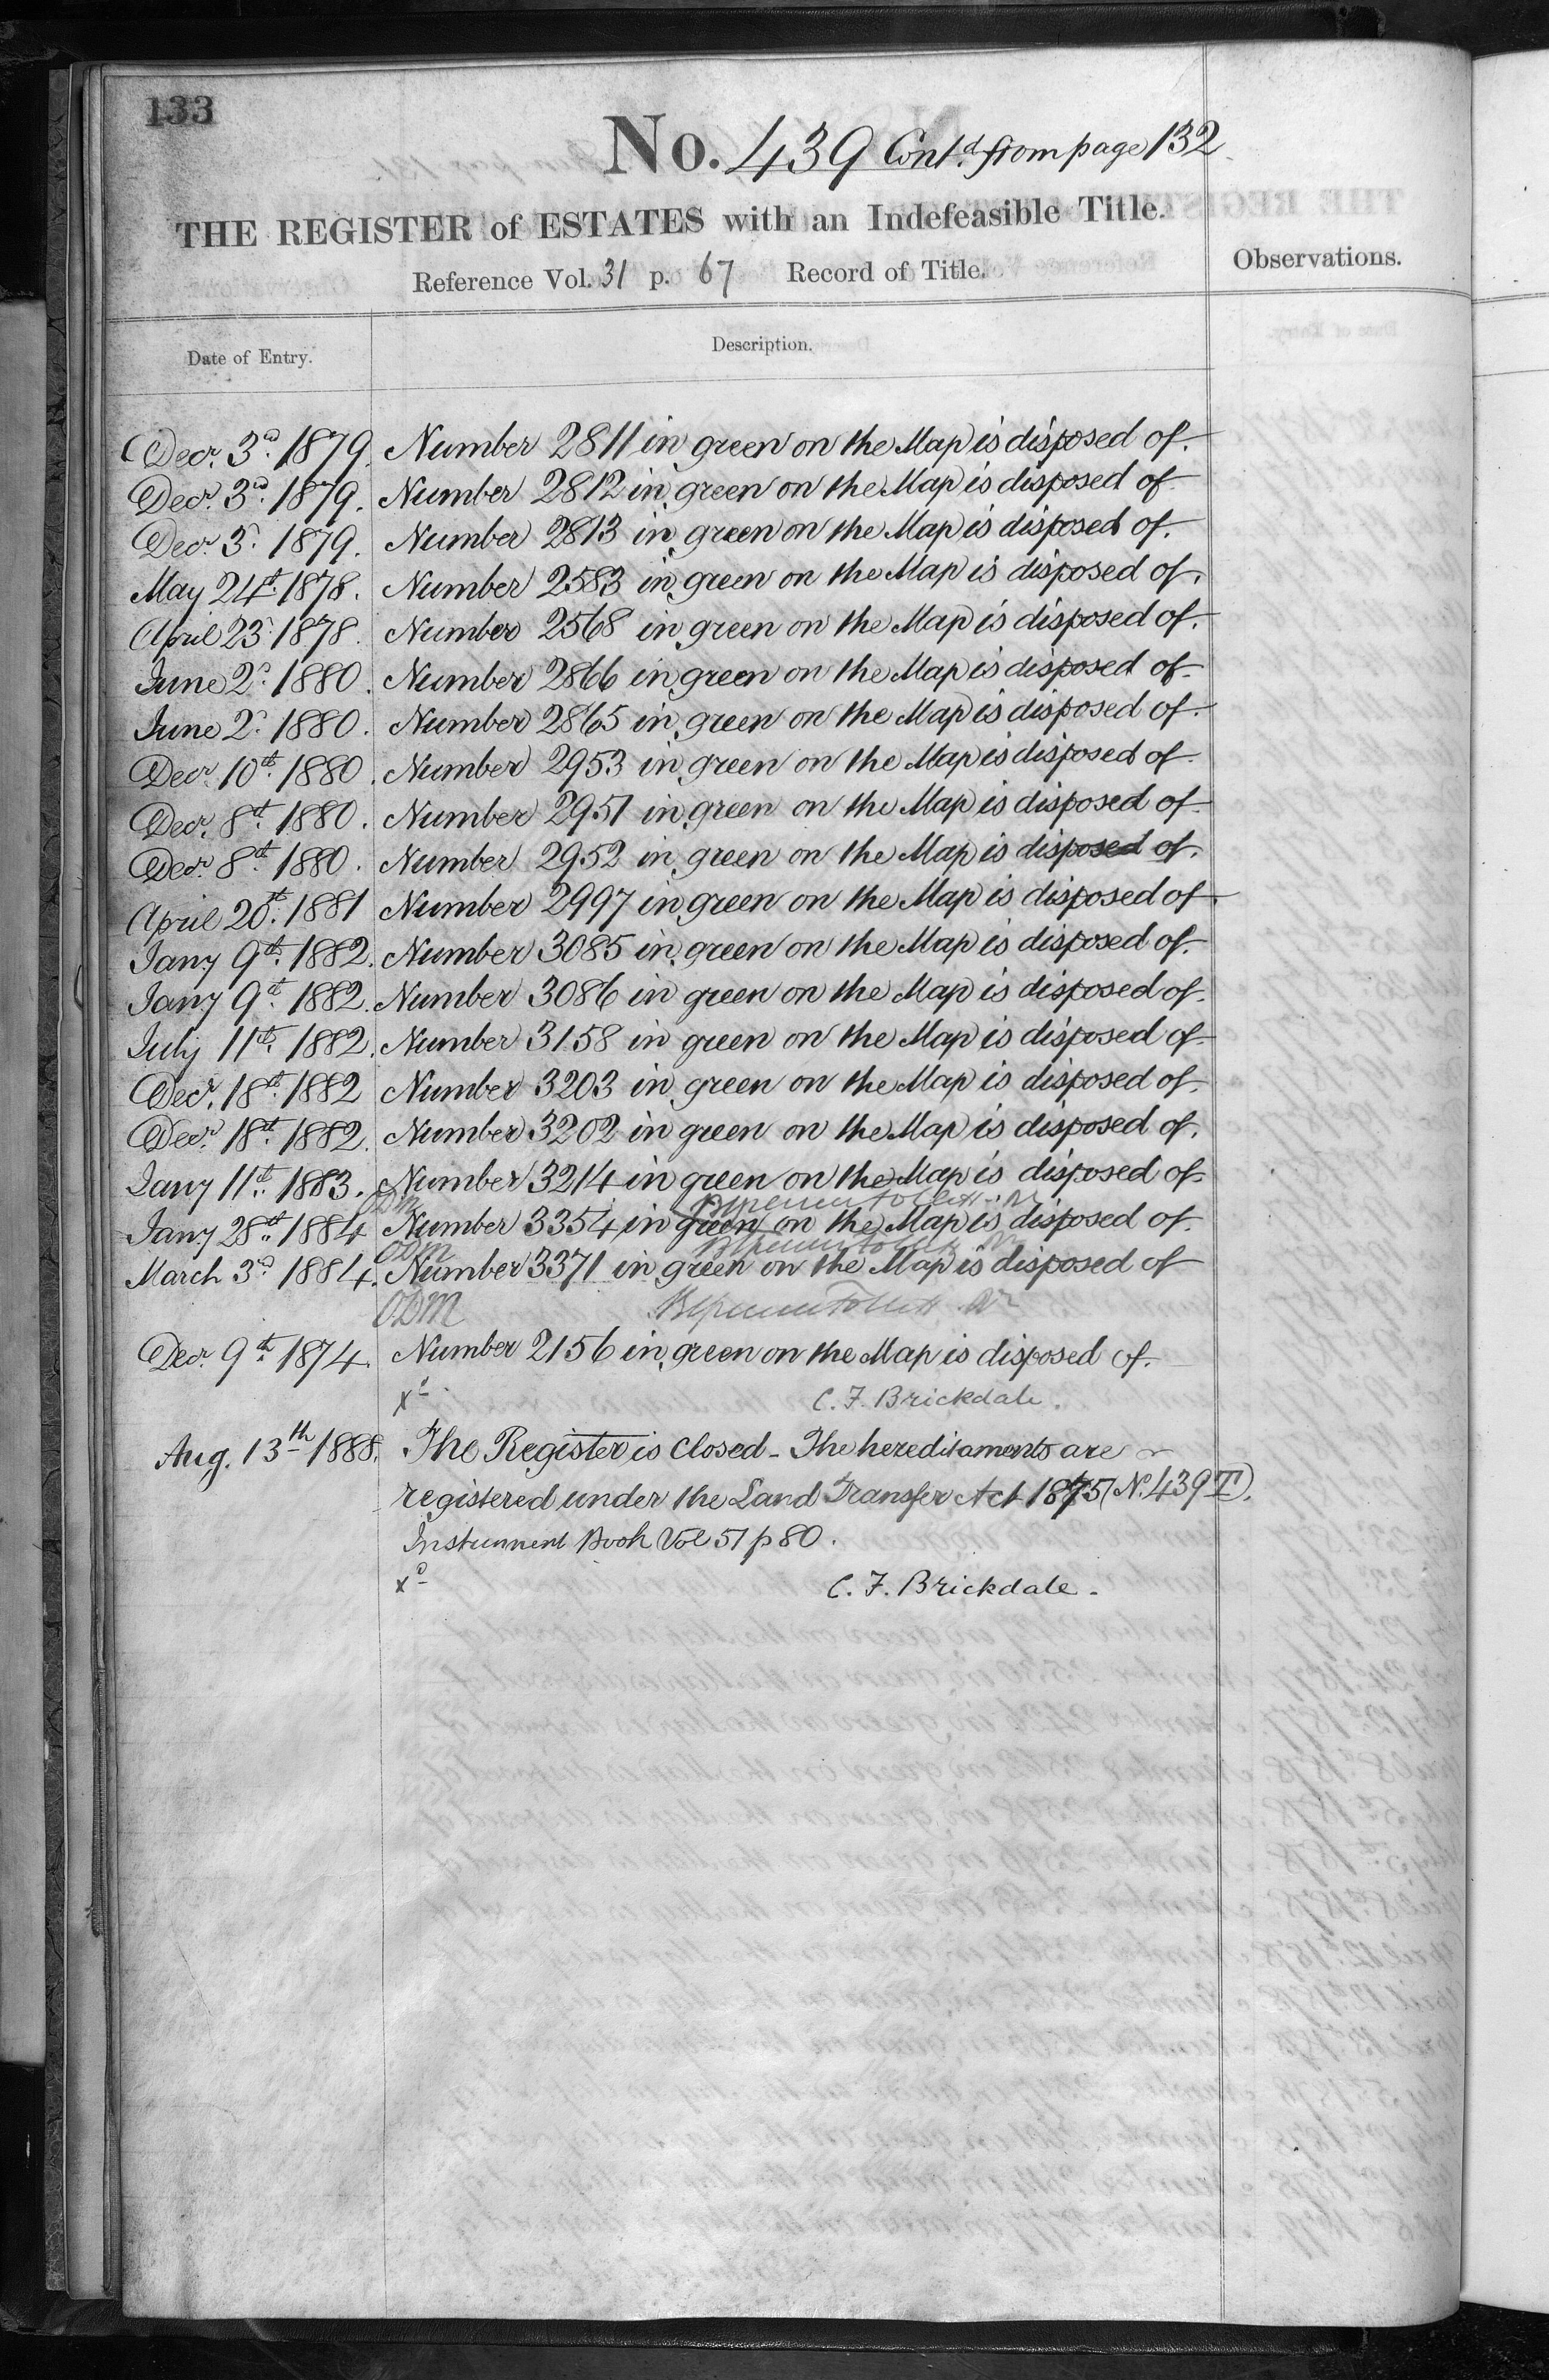 133
No. 439 Contd. from page 132
THE REGISTER of ESTATES with an Indefeasible Title.
Reference Vol. 31 p. 67 Record of Title.
Observations.
Date of Entry. Description.
Decr. 3d. 1879. Number 2811 in green on the Map is disposed of.
Decr. 3d. 1879. Number 2812 in green on the Map is disposed of
Decr. 3d. 1879. Number 2813 in green on the Map is disposed of.
May 24th. 1878. Number 2583 in green on the Map is disposed of.
April 23d. 1878. Number 2568 in green on the Map is disposed of.
June 2d. 1880. Number 2866 in green on the Map is disposed of.
June 2d. 1880. Number 2865 in green on the Map is disposed of.
Decr. 10th. 1880. Number 2953 in green on the Map is disposed of.
Decr. 8th. 1880. Number 2951 in green on the Map is disposed of
Decr. 8th. 1880. Number 2952 in green on the Map is disposed of.
April 20th. 1881 Number 2997 in green on the Map is disposed of.
Jany 9th. 1882. Number 3085 in green on the Map is disposed of.
Jany 9th. 1882. Number 3086 in green on the Map is disposed of.
July 11th. 1882. Number 3158 in green on the Map is disposed of
Decr. 18th. 1882 Number 3203 in green on the Map is disposed of.
Decr. 18th. 1882. Number 3202 in green on the Map is disposed of.
Jany 11th. 1883. Number 3214 in green on the Map is disposed of.
ODM
Jany 28th. 1884 Number 3354 in green on the Map is disposed of.
ODM
March 3d. 1884. Number 3371 in green on the Map is disposed of
ODM
Decr. 9th. 1874. Number 2156 in green on the Map is disposed of.
xd. C. F. Brickdale.
Aug. 13th 1888. The Register is closed - The hereditaments are
registered under the Land Transfer Act 1875 (No. 439 TI).
Instrument Book Vol 51 p 80.
xd C. F. Brickdale.